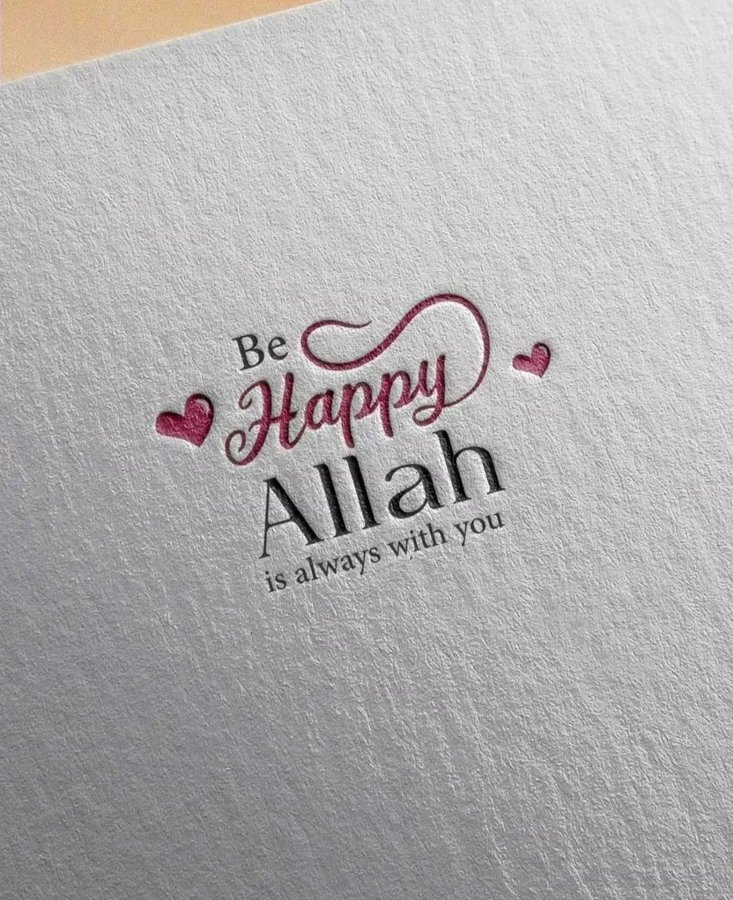 Be
Happy
Allah
is always with you